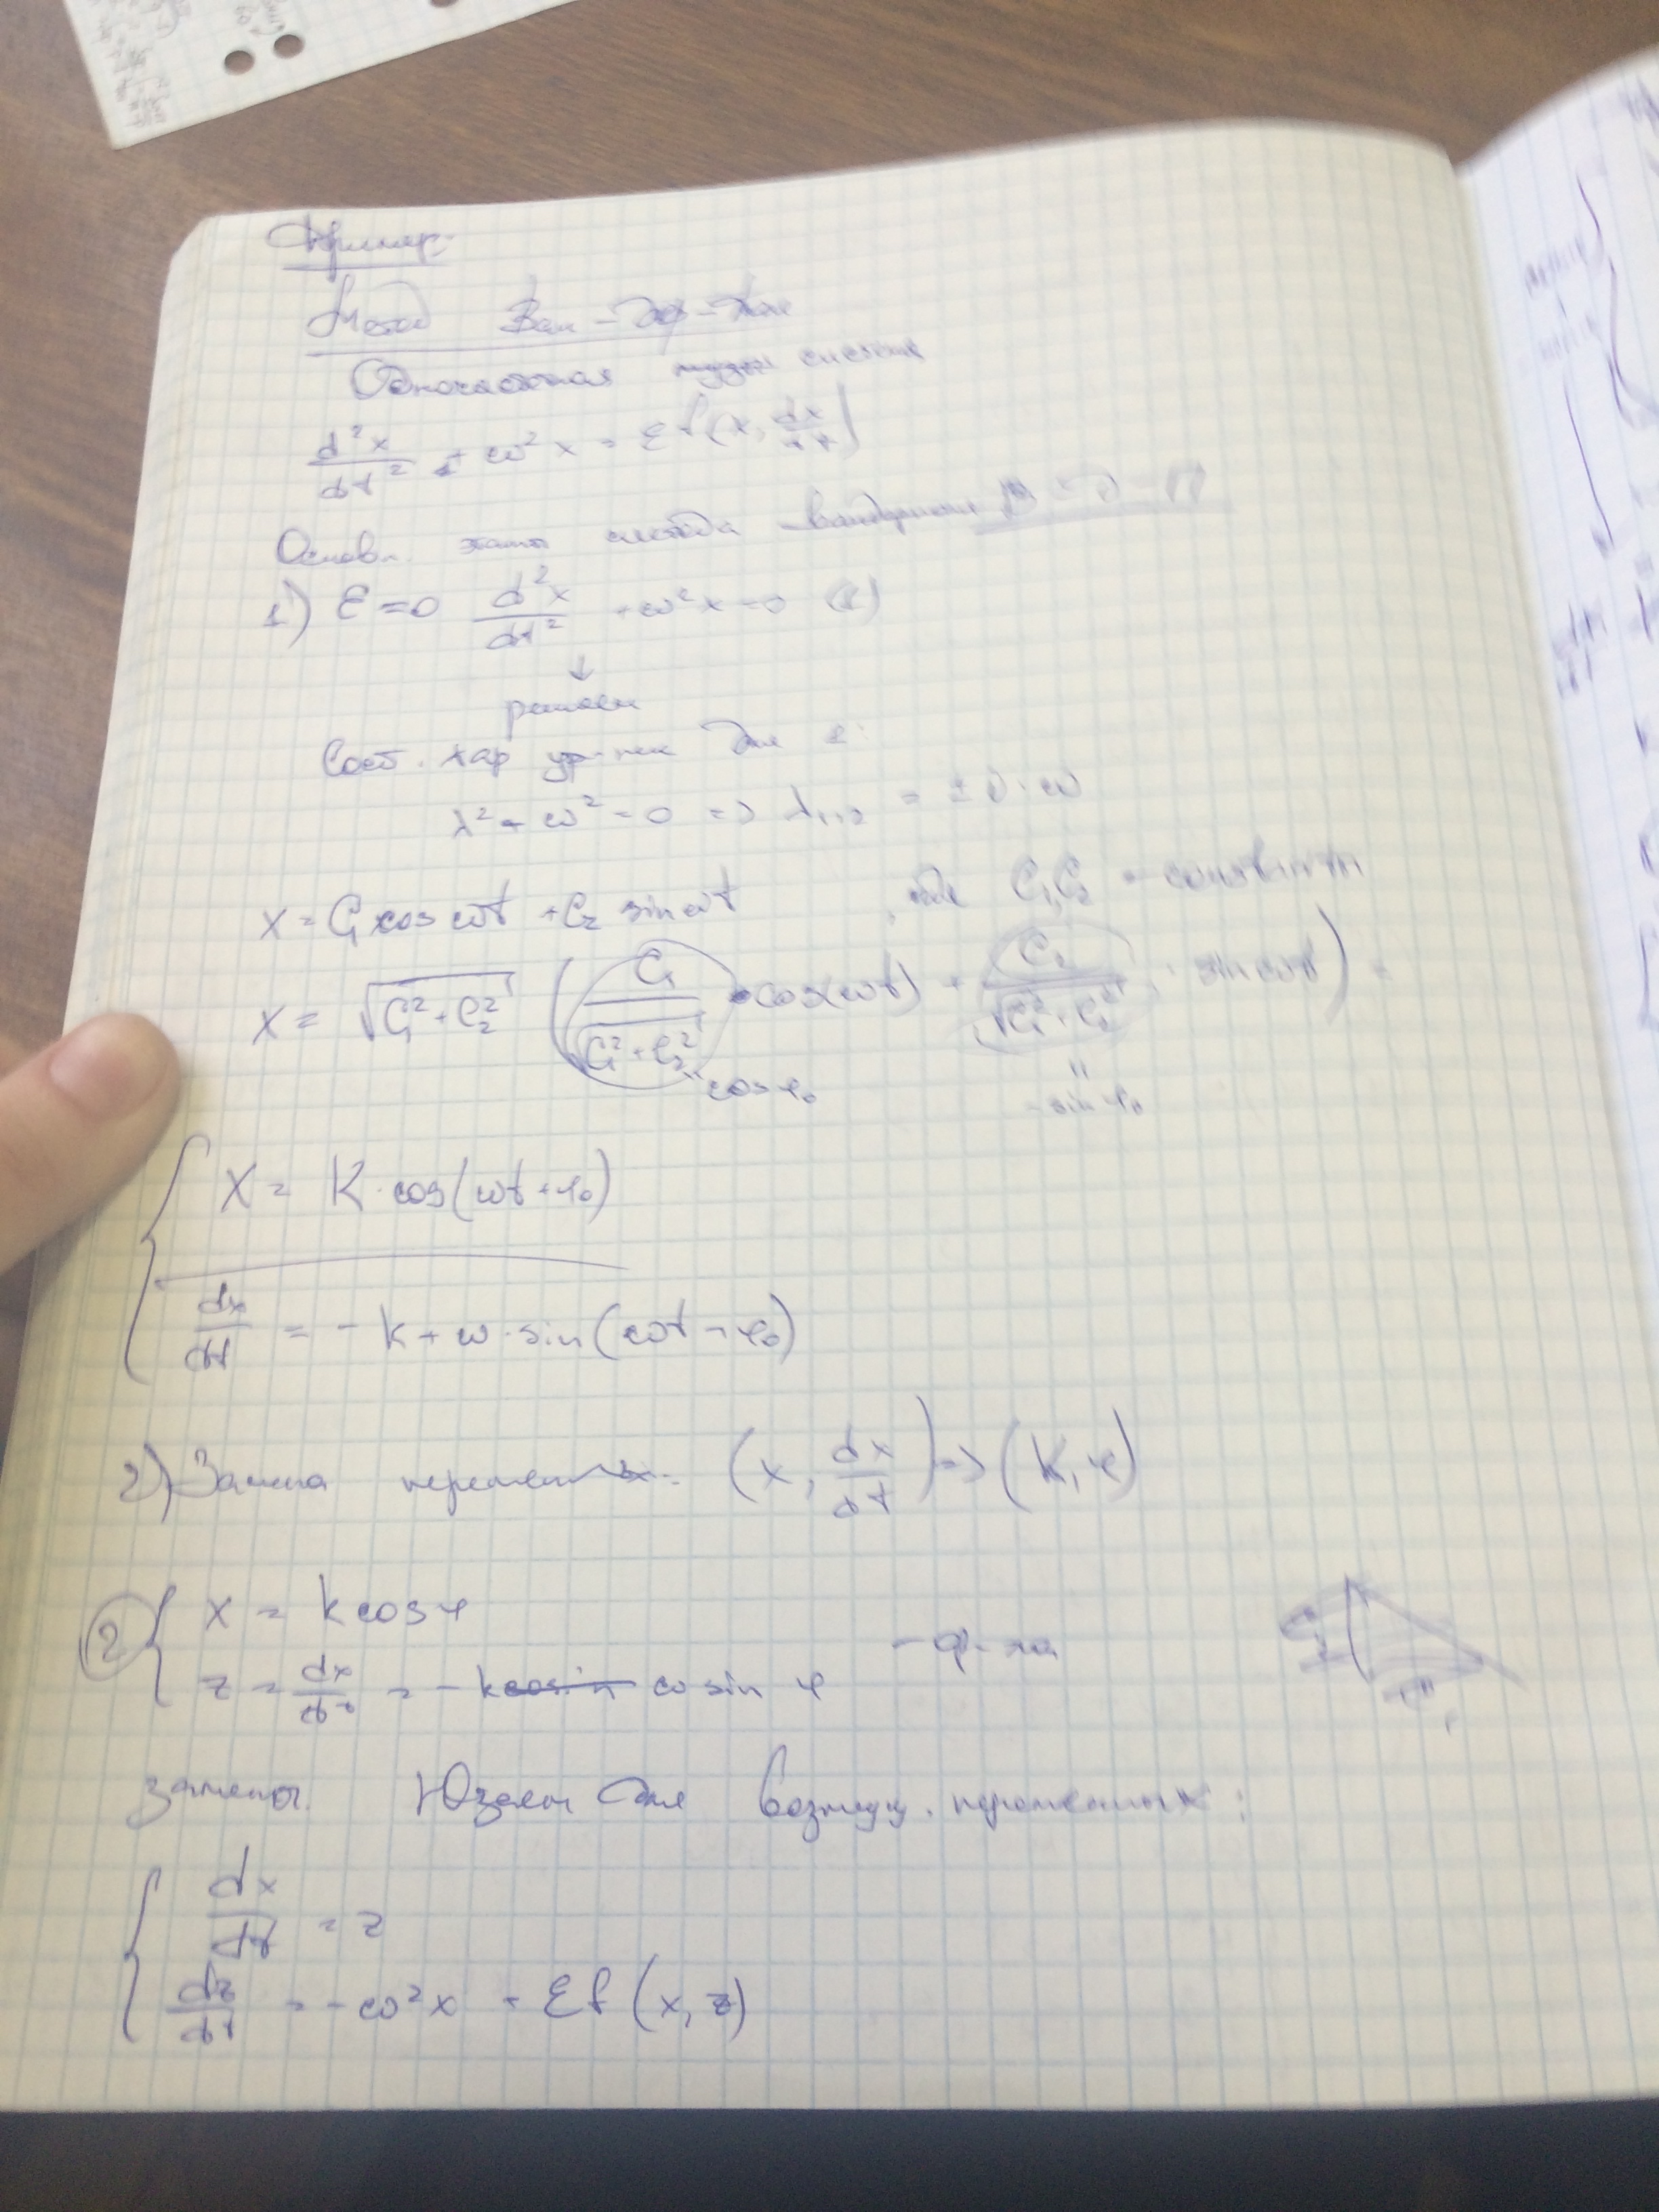 Пример.
Метод Ван-Дер-Поля
Одночастотная система
d²x/dt² + ω²x = εf(x, dx/dt)
Основн. этапы метода В-Д-П
1) ε=0 d²x/dt² + ω²x = 0 (1)
↓
решаем
Сост. хар ур-ние для 1:
λ² + ω² = 0 => λ₁,₂ = ± i·ω
x = C₁ cos ωt + C₂ sin ωt, где C₁, C₂ - константы
x = √(C₁² + C₂²) (C₁/√(C₁² + C₂²) · cos(ωt) + C₂/√(C₁² + C₂²) · sin ωt) =
" cos φ₀ " - sin φ₀
x = K·cos(ωt + φ₀)
dx/dt = - k + ω·sin(ωt + φ₀)
2) Замена переменных. (x, dx/dt) => (K, φ)
2 { x = k cos φ
z = dx/dt = - k ω sin φ - ф-ла
замены. Юзаем для возмущ. переменных:
dx/dt = z
dz/dt = - ω²x + εf(x, z)